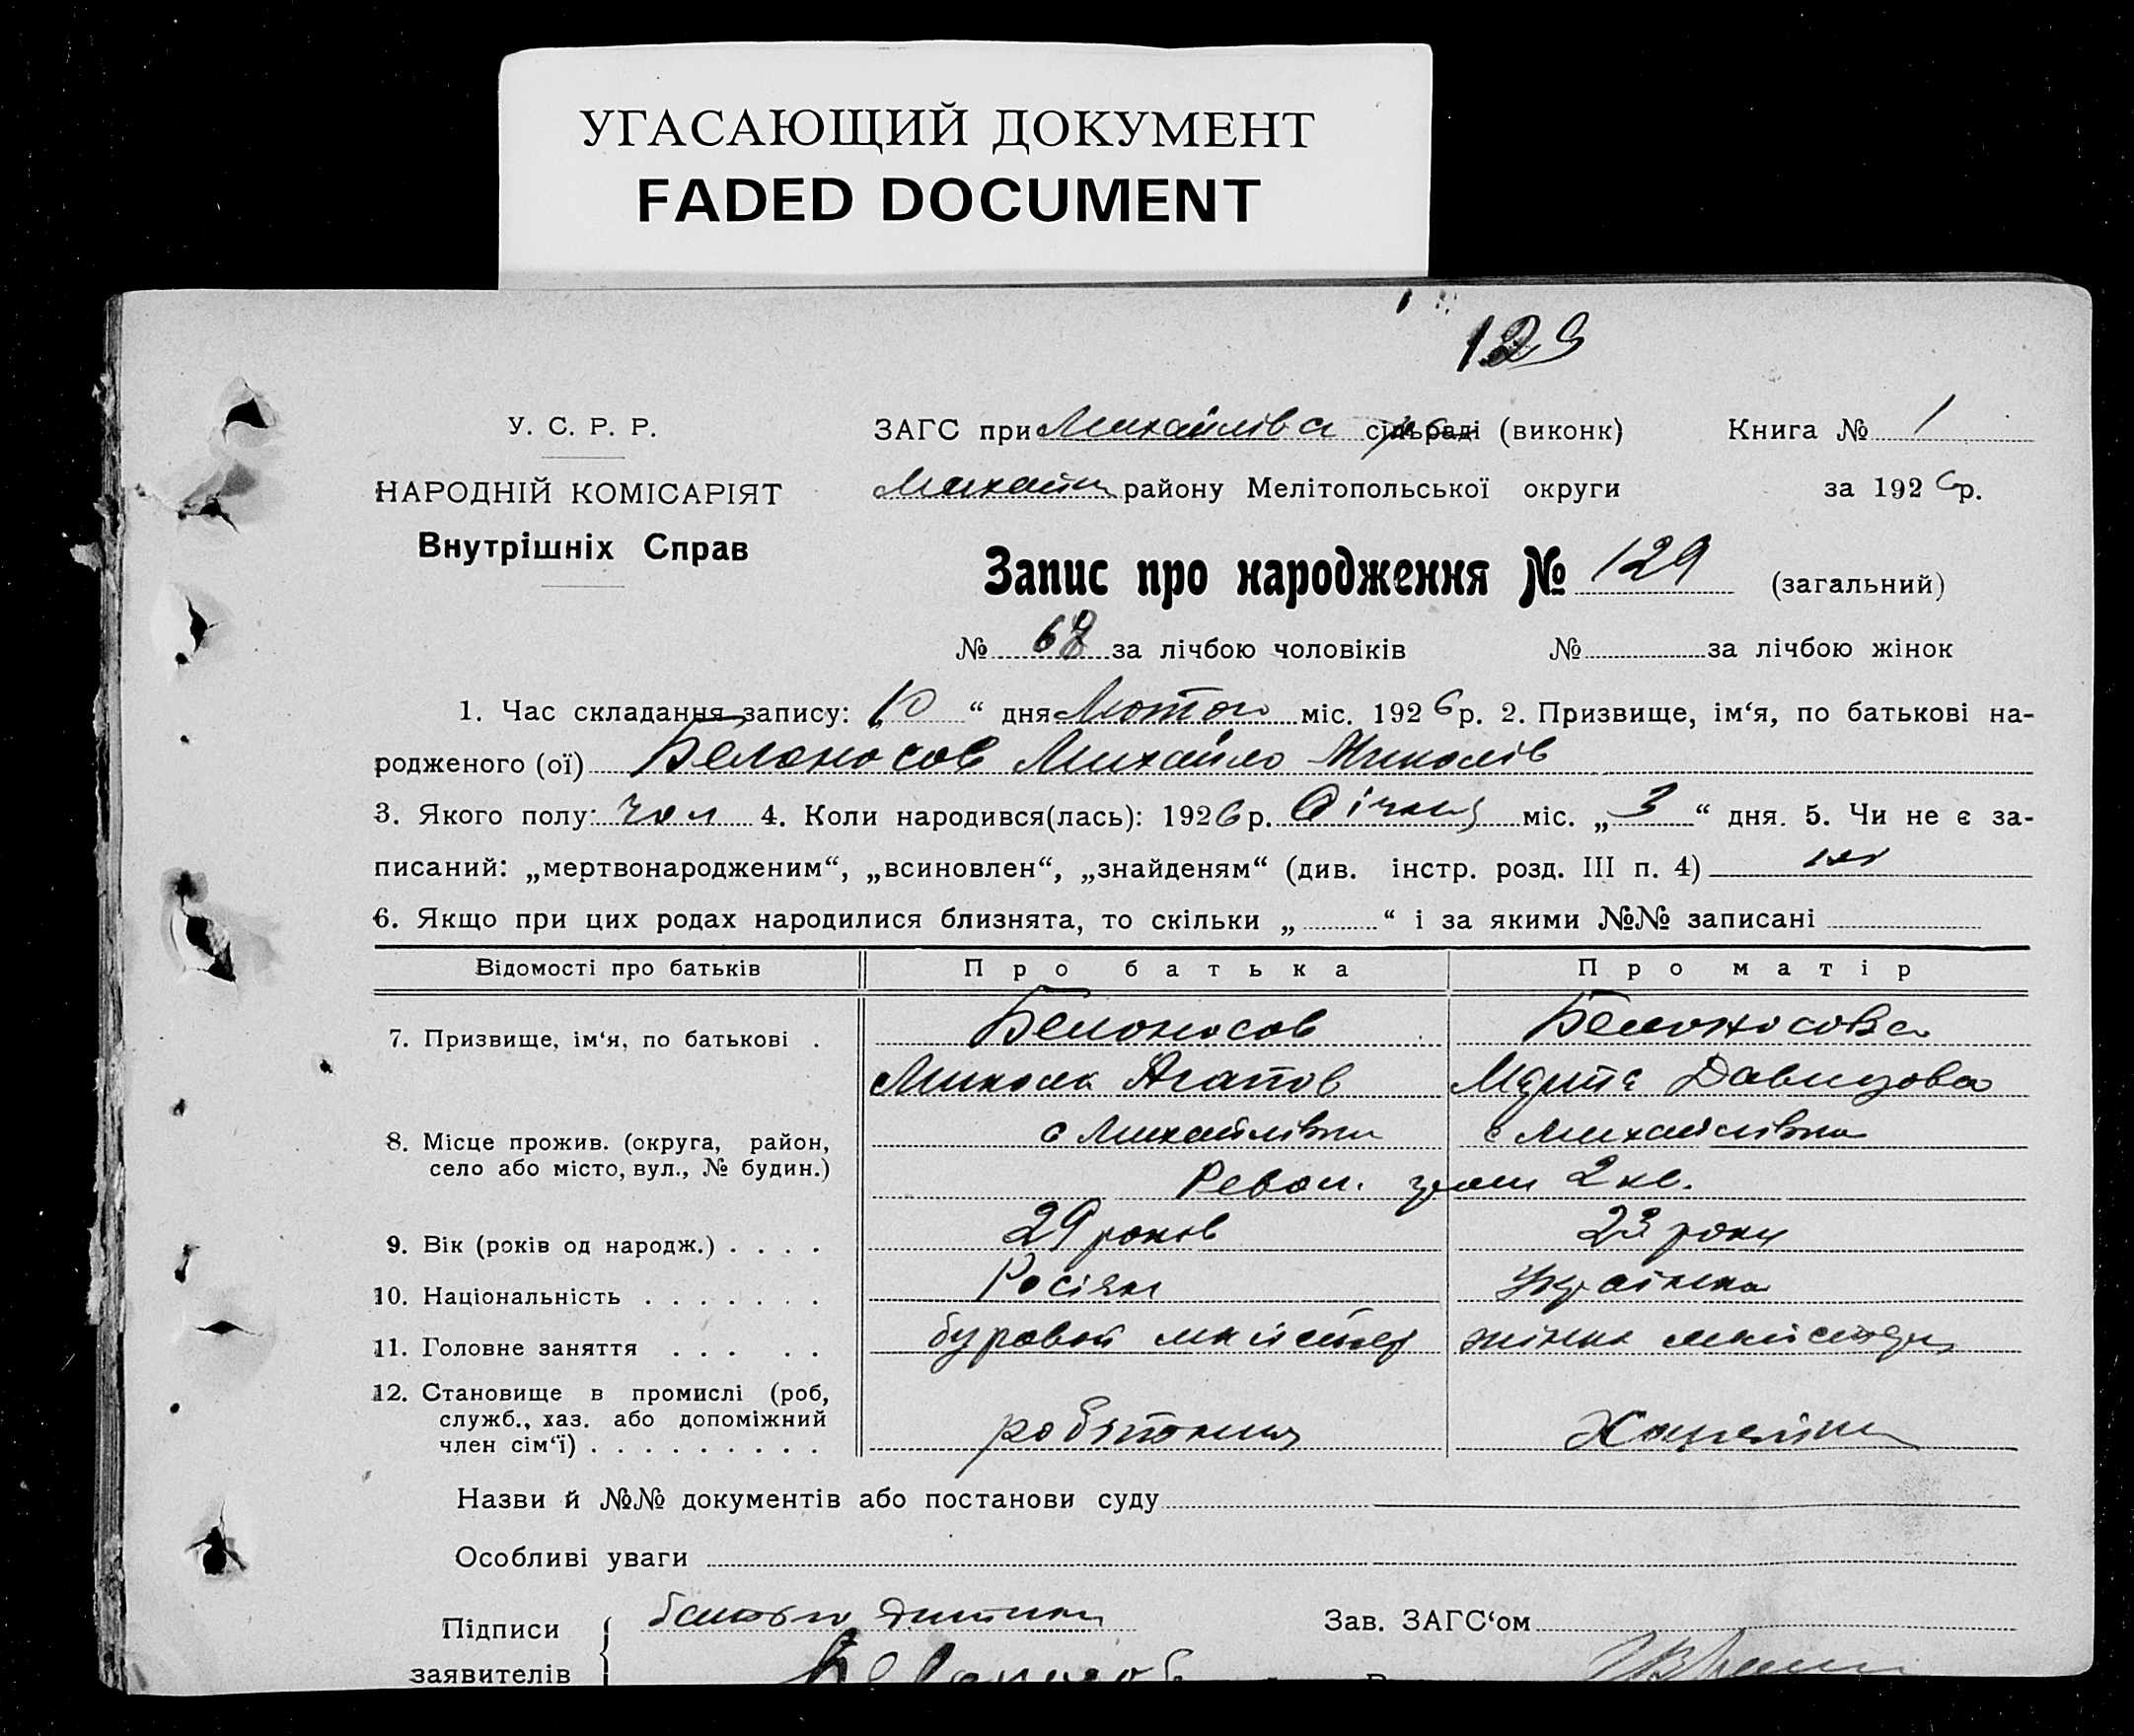 УГАСАЮЩИЙ ДОКУМЕНТ
FADED DOCUMENT
129
У. С. Р. Р.
НАРОДНІЙ КОМІСАРІЯТ
Внутрішніх Справ
ЗАГС при Михайлівс сільраді (виконк) Книга № 1
Михайл району Мелітопольської округи за 1926 р.
Запис про народження № 129 (загальний)
№ 68 за лічбою чоловіків № за лічбою жінок
1. Час складання запису: „10 “ дня Лютого міс. 1926 р. 2. Призвище, ім‘я, по батькові на-
родженого (ої) Белоносов Михайло Миколів
3. Якого полу: чол 4. Коли народився(лась): 1926 р. Січня міс. „ 3 “ дня. 5. Чи не є за-
писаний: „мертвонародженим“, „всиновлен“, „знайденям“ (див. інстр. розд. III п. 4) ні
6. Якщо при цих родах народилися близнята, то скільки „ “ і за якими №№ записані
Відомості про батьків Про батька Про матір
7. Призвище, ім‘я, по батькові . Белоносов Белоносова
Микола Агапов Марта Давидова
8. Місце прожив. (округа, район, с Михайлівка с Михайлівка
село або місто, вул., № будин.) Револ. 2 кв.
9. Вік (років од народж.) . . . . 29 років 23 роки
10. Національність . . . . . . . Росіян Українка
11. Головне заняття . . . . . буровой майстер жінка майстра
12. Становище в промислі (роб,
служб., хаз. або допоміжний
член сім‘ї) . . . . . . . . . робітник
Назви й №№ документів або постанови суду
Особливі уваги
Підписи батько дитини Зав. ЗАГС‘ом
заявителів Белоносов